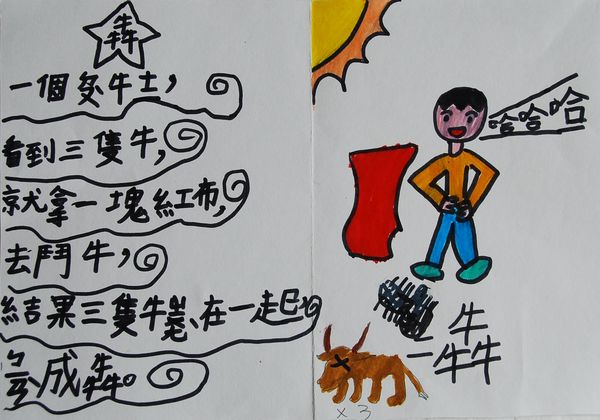 犇
一個牛士，
看到三隻牛，
就拿一塊紅布，
去鬥牛，
結果三隻牛、在一起
成犇。
哈哈哈
=犇
x3